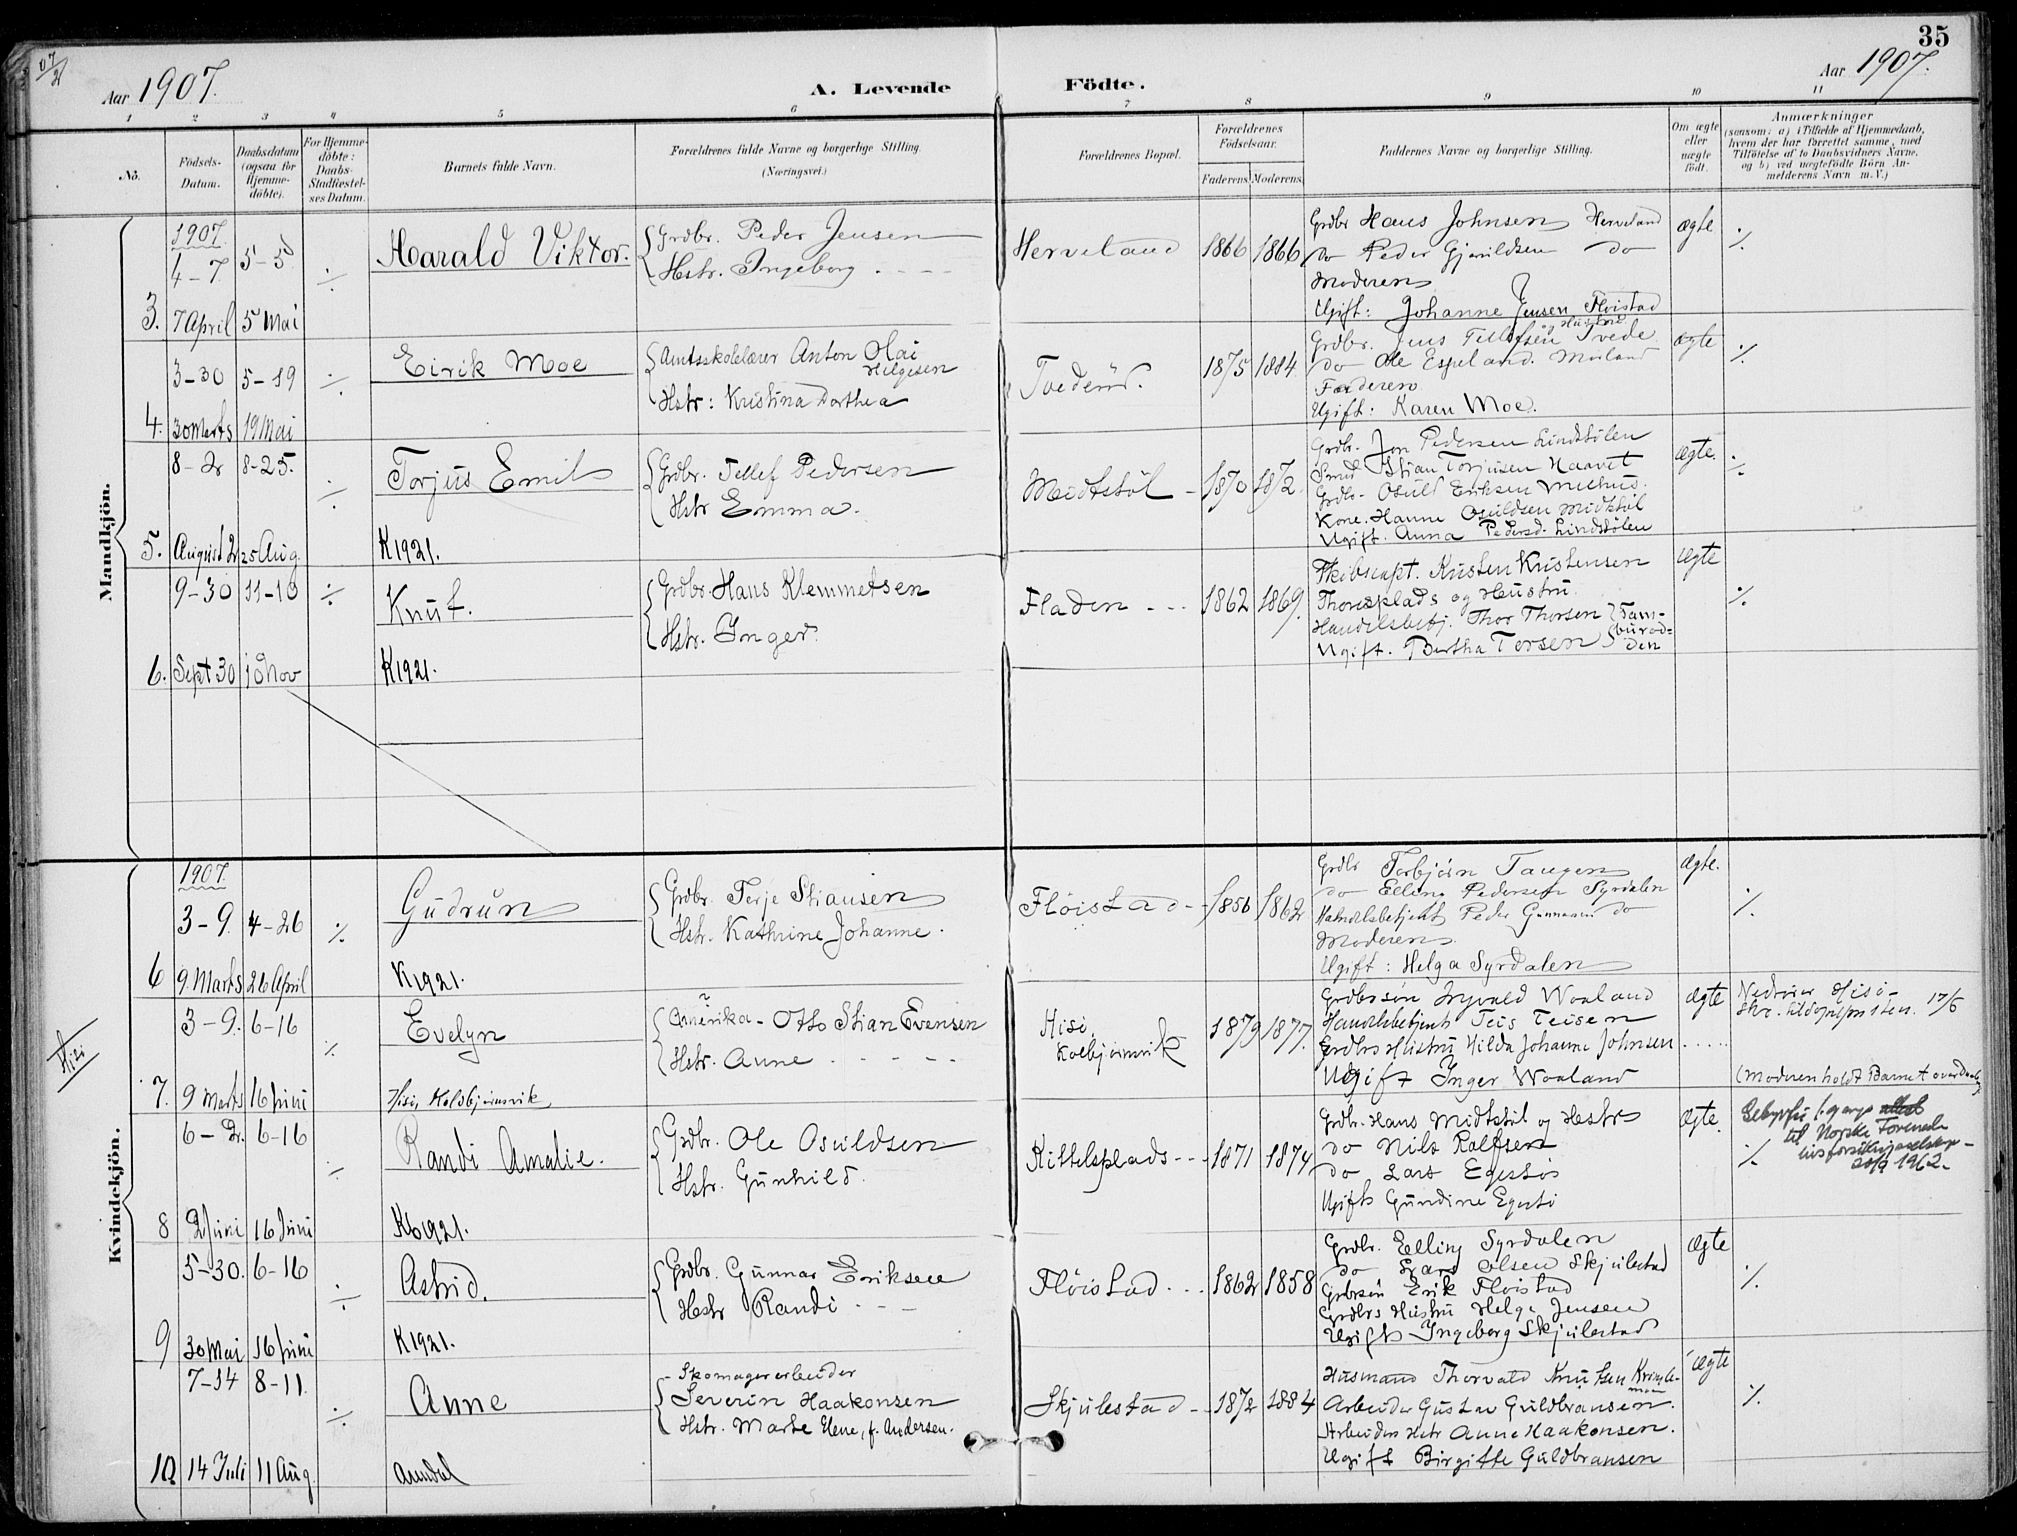 35
07/2
Aar 1907.
A. Levende Födte.
Aar 1907.
1 2 3 4 5 6 7 8 9 10 11
No.
Födsels-
Datum.
Daabsdatum
(ogsaa for
Hjemme-
döbte).
For Hjemme-
döbte:
Daabs-
Stadfæstel-
ses Datum.
Barnets fulde Navn.
Forældrenes fulde Navne og borgerlige Stilling.
(Næringsvei.)
Forældrenes Bopæl.
Forældrenes
Födselsaar.
Faderens. Moderens.
Faddernes Navne og borgerlige Stilling.
Om ægte
eller
uægte
födt.
Anmærkninger
(saasom: a) i Tilfælde af Hjemmedaab,
hvem der har forrettet samme, med
Tilföielse af to Daabsvidners Navne,
og b) ved uægtefödte Börn An-
melderens Navn m.V.)
Mandkjön.
1907.
4-7 5-5 ÷
Harald Viktor.
Grdbr. Peder Jensen
Hstr. Ingeborg
Herveland 1866 1866
Grdbr Hans Johnsen Herveland
do Peder Gjeruldsen do
Moderen
Ugift: Johanne Jensen Floistad
ægte ٪
3. 7 April 5 Mai
3-30 5-19 ÷
Eirik Moe
Amtsskolelærer Anton Olai
Helgesen
Hstr: Kristina Dorthea
Tvede 1875 1884
Grdbr. Jens Tellefsen Tvede
og Hustru
do Ole Espeland. Morland
Faderen
Ugift: Karen Moe.
ægte ٪
4. 30 Marts 19 Mai
8-2 8-25. ÷
Torjus Emil
Grdbr. Tellef Pedersen
Hstr Emma.
Midtstöl - 1870 1872.
Grdbr. Jon Pedersen Lindstölen
Smed Stian Torjusen Haavet
Grdbr- Osuld Eriksen
Kone. Hanne Osuldsen Midtstöl
Ugift. Anna Pedersd. Lindstölen
ægte. ٪
5. August 2 25 Aug.
K1921.
9-30 11-10 ÷
Knut.
Grdbr. Hans Klemmetsen
Hstr. Inger.
Fladen - - - 1862 1869.
Skibscapt. Kristen Kristensen
Thoresplads og Hustru.
Handelsbetj. Thor Thorsen
Ugift. Bertha Torsen
ægte ٪
6. Sept 30 10 Nov
K1921.
Kvindekjön.
1907.
3-9. 4-26 ٪
Gudrun
Grdbr. Terje Stiansen
Hstr. Kathrine Johanne.
Flöistad - - 1856 1862
Grdbr Torbjörn Tangen
do Elling Pedersen Syrdalen
Handelsbetjent Peder Gunnarsen do
Moderen
Ugift: Helga Syrdalen
Ægte. ٪
6 9. Marts 26 April
K1921.
Hisi
3-9. 6-16 ٪
Evelyn
Amerika - Otto Stian Evensen
Hstr. Anne
Hisi
Kolbjörnsvik 1879 1877.
Grdbrssön Ingvald Woxland
Handelsbetjent Teis Teisen
Grdbrs Hustru Hilda Johanne Johnsen
Ugift Inger Woxland
Ægte
Nedenes Hisi-
17/6
(Moderen holdt Barnet over Daaben)
7. 9 Marts 16 Juni
Hisi, Kolbjörnsvik
6-2. 6-16 ÷
Randi Amalie.
Grdbr. Ole Osuldsen
Hstr. Gunhild.
Kittelsplads - - - 1871 1874
Grdbr. Hans Midtstöl og Hustr
do Nils Ralfsen
do Lars Egersös
Ugift Gundine
Ægte. ٪
til Norske Forenede
Livsforsikringsselskap -
20/9 1962.
8 2 Juni 16 Juni
K1921.
5-30. 6-16 ÷
Astrid.
Grdbr. Gunnar Eriksen
Hstr Randi - - -
Flöistad. . . 1862 1858
Grdbr. Elling Syrdalen
do Lars Olsen Skjulestad
Grdbrsön Erik Flöistad
Grdbrs Hustru Helga Jensen
Ugift Ingeborg Skjulestad
Ægte ٪
9 30 Mai 16 Juni
K1921.
7-14 8-11. ÷
Anne
Skomagerarbeider
Severin Haakonsen
Hstr. Marte Elene, f. Andersen.
Skjulestad - - 1872 1884
Husmand Thorvald Knutsen
Arbeider Gustav Guldbransen.
Arbeiders Hstr Anne Haakonsen.
Ugift Birgitte Guldbransen
Ægte ٪
10. 14 Juli 11 Aug.
Arendal